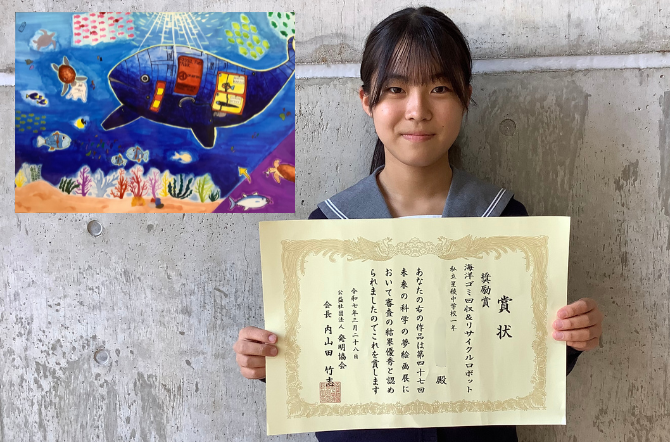 賞状
奨励賞
海洋ゴミ回収&リサイクルロボット
私立星稜中学校一年
殿
あなたの右の作品は第四十七回
未来の科学の夢絵画展に
おいて審査の結果優秀と認め
られましたのでこれを賞します
令和七年二月二十八日
公益社団法人 発明協会
会長 内山田 竹志